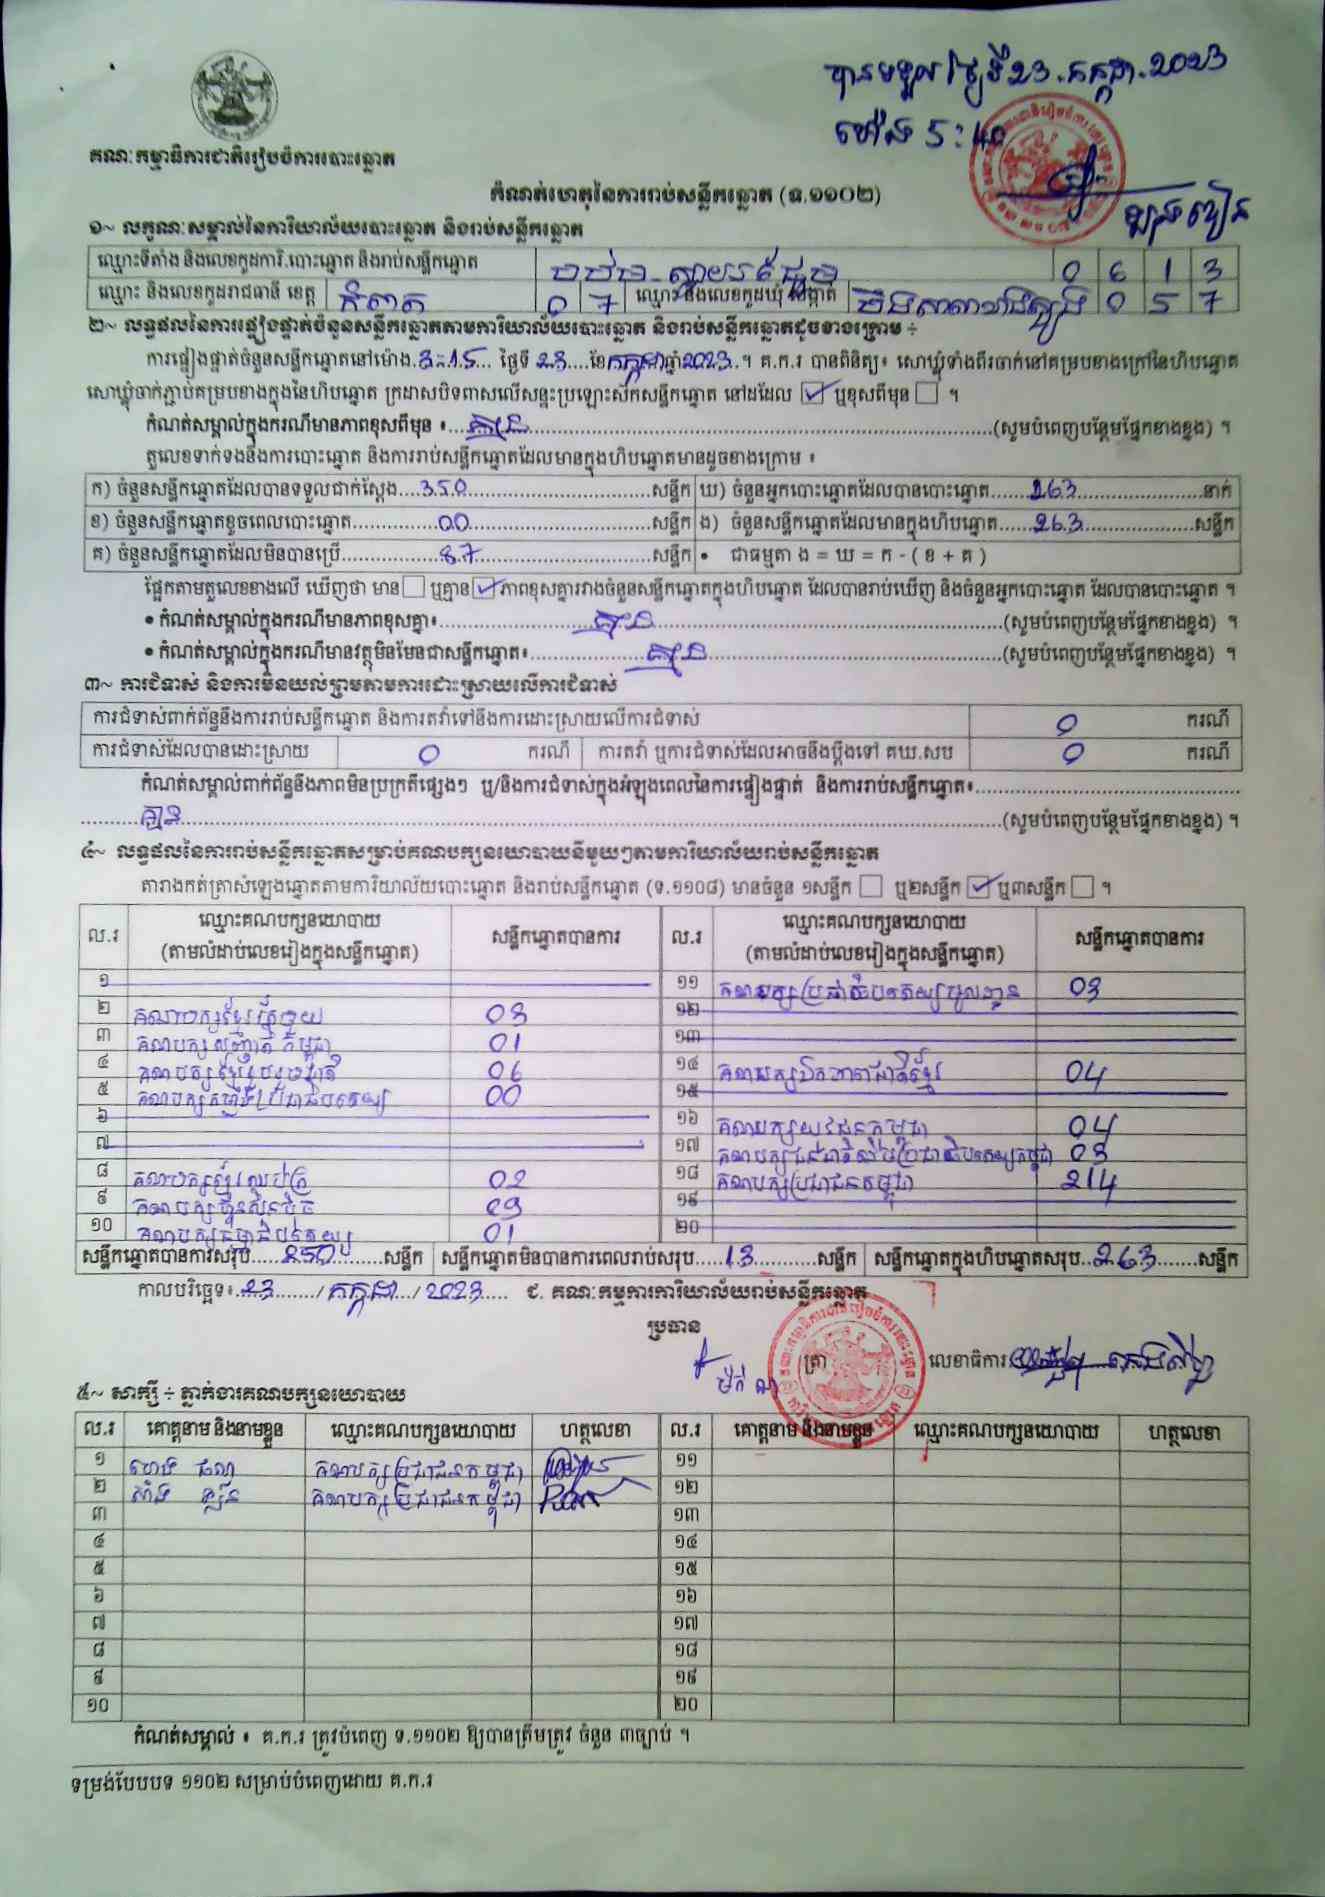 បានទទួល ថ្ងៃទី 23 . កក្កដា . 2023
ម៉ោង 5 : 40
គណៈកម្មាធិការជាតិរៀបចំការបោះឆ្នោត
កំណត់ហេតុនៃការរាប់សន្លឹកឆ្នោត (ទ.១១០២)
១~ លក្ខណៈសម្គាល់នៃការិយាល័យបោះឆ្នោត និងរាប់សន្លឹកឆ្នោត
ឈ្មោះទីតាំង និងលេខកូដការិ.បោះឆ្នោត និងរាប់សន្លឹកឆ្នោត 0 6 1 3
ឈ្មោះ និងលេខកូដរាជធានី ខេត្ត កំពត 0 7 ឈ្មោះ និងលេខកូដឃុំ សង្កាត់ 0 5 7
២~ លទ្ធផលនៃការផ្ទៀងផ្ទាត់ចំនួនសន្លឹកឆ្នោតតាមការិយាល័យបោះឆ្នោត និងរាប់សន្លឹកឆ្នោតដូចខាងក្រោម ÷
ការផ្ទៀងផ្ទាត់ចំនួនសន្លឹកឆ្នោតនៅម៉ោង.3:15... ថ្ងៃទី 23....ខែកក្កដាឆ្នាំ2023..។ គ.ក.រ បានពិនិត្យ៖ សោឃ្លុំទាំងពីរចាក់នៅគម្របខាងក្រៅនៃហិបឆ្នោត
សោឃ្លុំចាក់ភ្ជាប់គម្របខាងក្នុងនៃហិបឆ្នោត ក្រដាសបិទពាសលើសន្ទះប្រឡោះស៊កសន្លឹកឆ្នោត នៅដដែល ☑ ឬខុសពីមុន ☐ ។
កំណត់សម្គាល់ក្នុងករណីមានភាពខុសពីមុន ៖....គ្មាន....(សូមបំពេញបន្ថែមផ្នែកខាងខ្នង) ។
តួលេខទាក់ទងនឹងការបោះឆ្នោត និងការរាប់សន្លឹកឆ្នោតដែលមានក្នុងហិបឆ្នោតមានដូចខាងក្រោម ៖
ក) ចំនួនសន្លឹកឆ្នោតដែលបានទទួលជាក់ស្តែង....350....សន្លឹក ឃ) ចំនួនអ្នកបោះឆ្នោតដែលបានបោះឆ្នោត....263....នាក់
ខ) ចំនួនសន្លឹកឆ្នោតខូចពេលបោះឆ្នោត....00....សន្លឹក ង) ចំនួនសន្លឹកឆ្នោតដែលមានក្នុងហិបឆ្នោត....263....សន្លឹក
គ) ចំនួនសន្លឹកឆ្នោតដែលមិនបានប្រើ....87....សន្លឹក • ជាធម្មតា ង = ឃ = ក - ( ខ + គ )
ផ្អែកតាមតួលេខខាងលើ ឃើញថា មាន ☐ ឬគ្មាន ☑ ភាពខុសគ្នារវាងចំនួនសន្លឹកឆ្នោតក្នុងហិបឆ្នោត ដែលបានរាប់ឃើញ និងចំនួនអ្នកបោះឆ្នោត ដែលបានបោះឆ្នោត ។
• កំណត់សម្គាល់ក្នុងករណីមានភាពខុសគ្នា៖....គ្មាន....(សូមបំពេញបន្ថែមផ្នែកខាងខ្នង) ។
• កំណត់សម្គាល់ក្នុងករណីមានវត្ថុមិនមែនជាសន្លឹកឆ្នោត៖....គ្មាន....(សូមបំពេញបន្ថែមផ្នែកខាងខ្នង) ។
៣~ ការជំទាស់ និងការមិនយល់ព្រមតាមការដោះស្រាយលើការជំទាស់
ការជំទាស់ពាក់ព័ន្ធនឹងការរាប់សន្លឹកឆ្នោត និងការតវ៉ាទៅនឹងការដោះស្រាយលើការជំទាស់ 0 ករណី
ការជំទាស់ដែលបានដោះស្រាយ 0 ករណី ការតវ៉ា ឬការជំទាស់ដែលអាចនឹងប្តឹងទៅ គឃ.សប 0 ករណី
កំណត់សម្គាល់ពាក់ព័ន្ធនឹងភាពមិនប្រក្រតីផ្សេងៗ ឬ/និងការជំទាស់ក្នុងអំឡុងពេលនៃការផ្ទៀងផ្ទាត់ និងការរាប់សន្លឹកឆ្នោត៖....
....គ្មាន....(សូមបំពេញបន្ថែមផ្នែកខាងខ្នង) ។
៤~ លទ្ធផលនៃការរាប់សន្លឹកឆ្នោតសម្រាប់គណបក្សនយោបាយនីមួយៗតាមការិយាល័យរាប់សន្លឹកឆ្នោត
តារាងកត់ត្រាសំឡេងឆ្នោតតាមការិយាល័យបោះឆ្នោត និងរាប់សន្លឹកឆ្នោត (ទ.១១០៨) មានចំនួន ១សន្លឹក ☐ ឬ២សន្លឹក ☑ ឬ៣សន្លឹក ☐ ។
ល.រ ឈ្មោះគណបក្សនយោបាយ (តាមលំដាប់លេខរៀងក្នុងសន្លឹកឆ្នោត) សន្លឹកឆ្នោតបានការ ល.រ ឈ្មោះគណបក្សនយោបាយ (តាមលំដាប់លេខរៀងក្នុងសន្លឹកឆ្នោត) សន្លឹកឆ្នោតបានការ
១ ១១ គណបក្សប្រជាធិបតេយ្យមូលដ្ឋាន 03
២ គណបក្សខ្មែរតែមួយ 03 ១២
៣ គណបក្សសញ្ជាតិកម្ពុជា 01 ១៣
៤ គណបក្សខ្មែររួបរួមជាតិ 06 ១៤ គណបក្សឯកភាពជាតិខ្មែរ 04
៥ គណបក្សសំបុកឃ្មុំប្រជាធិបតេយ្យ 00 ១៥
៦ ១៦ គណបក្សយុវជនកម្ពុជា 04
៧ ១៧ គណបក្សជនជាតិដើមប្រជាធិបតេយ្យកម្ពុជា 03
៨ 02 ១៨ គណបក្សប្រជាជនកម្ពុជា 214
៩ គណបក្សហ្វ៊ុនស៊ិនប៉ិច 09 ១៩
១០ គណបក្សធម្មាធិបតេយ្យ 01 ២០
សន្លឹកឆ្នោតបានការសរុប....250....សន្លឹក សន្លឹកឆ្នោតមិនបានការពេលរាប់សរុប....13....សន្លឹក សន្លឹកឆ្នោតក្នុងហិបឆ្នោតសរុប..263....សន្លឹក
កាលបរិច្ឆេទ៖.23..../ កក្កដា.../ 2023..... ជ. គណៈកម្មការការិយាល័យរាប់សន្លឹកឆ្នោត
ប្រធាន
(ត្រា លេខាធិការ
៥~ សាក្សី ÷ ភ្នាក់ងារគណបក្សនយោបាយ
ល.រ គោត្តនាម និងនាមខ្លួន ឈ្មោះគណបក្សនយោបាយ ហត្ថលេខា ល.រ គោត្តនាម និងនាមខ្លួន ឈ្មោះគណបក្សនយោបាយ ហត្ថលេខា
១ គណបក្សប្រជាជនកម្ពុជា ១១
២ គណបក្សប្រជាជនកម្ពុជា ១២
៣ ១៣
៤ ១៤
៥ ១៥
៦ ១៦
៧ ១៧
៨ ១៨
៩ ១៩
១០ ២០
កំណត់សម្គាល់ ៖ គ.ក.រ ត្រូវបំពេញ ទ.១១០២ ឱ្យបានត្រឹមត្រូវ ចំនួន ៣ច្បាប់ ។
ទម្រង់បែបបទ ១១០២ សម្រាប់បំពេញដោយ គ.ក.រ